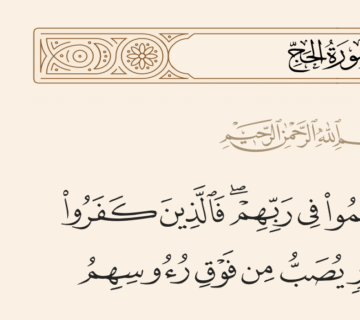 سُورَةُ الحَجِّ
ٱللَّهِ ٱلرَّحْمَٰنِ ٱلرَّحِيمِ
فِى رَبِّهِمْ ۖ فَٱلَّذِينَ كَفَرُوا۟
يُصَبُّ مِن فَوْقِ رُءُوسِهِمُ